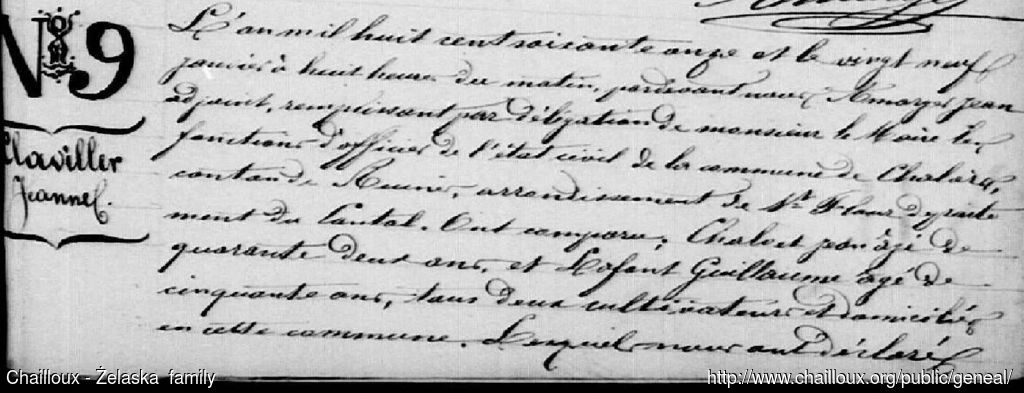 N° 9
Claviller
Jeanne.
L'an mil huit cent soixante onze et le vingt neuf
janvier à huit heures du matin, pardevant nous Amarger Jean
adjoint, remplissant par délégation de monsieur le Maire les
fonctions d'officier de l'état civil de la commune de Chaliers,
canton de Ruines, arrondissement de St Flour departe
ment du Cantal. Ont comparu: Chalvet Jean âgé de
quarante deux ans, et Lafont Guillaume âgé de
cinquante ans, tous deux cultivateurs et domiciliés
en cette commune. Lesquels nous ont déclaré
Chailloux - Żelaska family
http://www.chailloux.org/public/geneal/